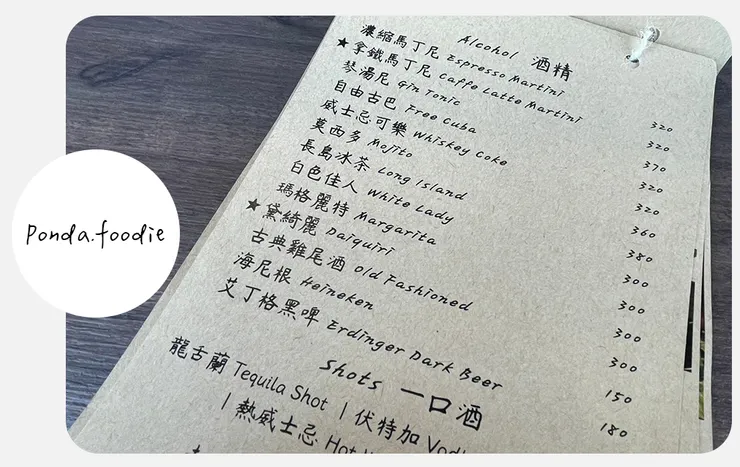 Ponda.foodie
Alcohol 酒精
濃縮馬丁尼 Espresso Martini 320
★ 拿鐵馬丁尼 Caffe Latte Martini 320
琴湯尼 Gin Tonic 370
自由古巴 Free Cuba 320
威士忌可樂 Whiskey Coke 320
莫西多 Mojito 360
長島冰茶 Long Island 380
白色佳人 White Lady 300
瑪格麗特 Margarita 300
★ 黛綺麗 Daiquiri 300
古典雞尾酒 Old Fashioned 300
海尼根 Heineken 150
艾丁格黑啤 Erdinger Dark Beer 180
Shots 一口酒
龍舌蘭 Tequila Shot | 伏特加
| 熱威士忌